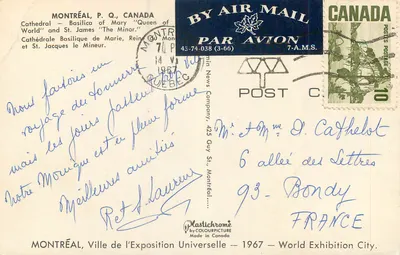 MONTRÉAL, P. Q., CANADA
Cathedral - Basilica of Mary "Queen of
World" and St. James "The Minor."
Cathédrale Basilique de Marie, Reine
et St. Jacques le Mineur.
BY AIR MAIL
PAR AVION
43-74-038 (3-66)
7-A.M.S.
MONTREAL
14 VI
1967
QUEBEC
CANADA
10
POST C
Nous faisons un
voyage de
mais les jours passent
Notre Monique est en pleine forme
Meilleures amitiés
R et S Laurent
News Company, 425 Guy St., Montréal
M. et Mme St Cathelot
6 allée des Lettres
93 - Bondy
FRANCE
Plastichrome
by COLOURPICTURE
Made in Canada
MONTRÉAL, Ville de l'Exposition Universelle - 1967 - World Exhibition City.